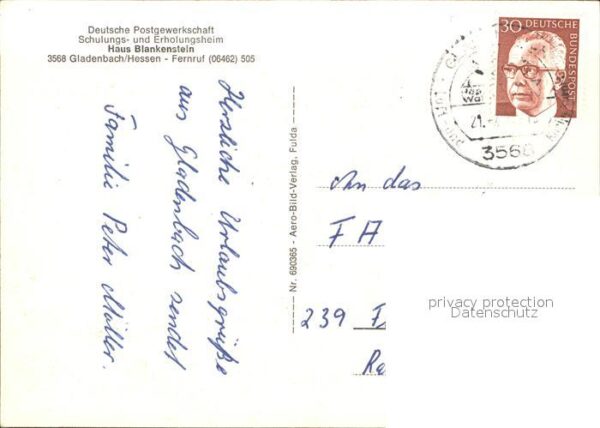 Deutsche Postgewerkschaft
Schulungs- und Erholungsheim
Haus Blankenstein
3568 Gladenbach/Hessen - Fernruf (06462) 505
Herzliche Urlaubsgrüße
aus Gladenbach sendet
Familie Peter Müller.
Nr. 690365 - Aero-Bild-Verlag, Fulda
30 DEUTSCHE
BUNDESPOST
21.
3568
An das
FA
239 F
Ra
privacy protection
Datenschutz